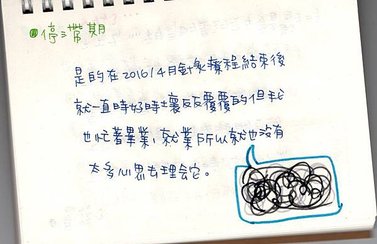 停滯期
是的在2016/4月針灸療程結束後
就一直時好時壞反反覆覆的但我
也忙著畢業、就業所以就也沒有
太多心思去理會它。